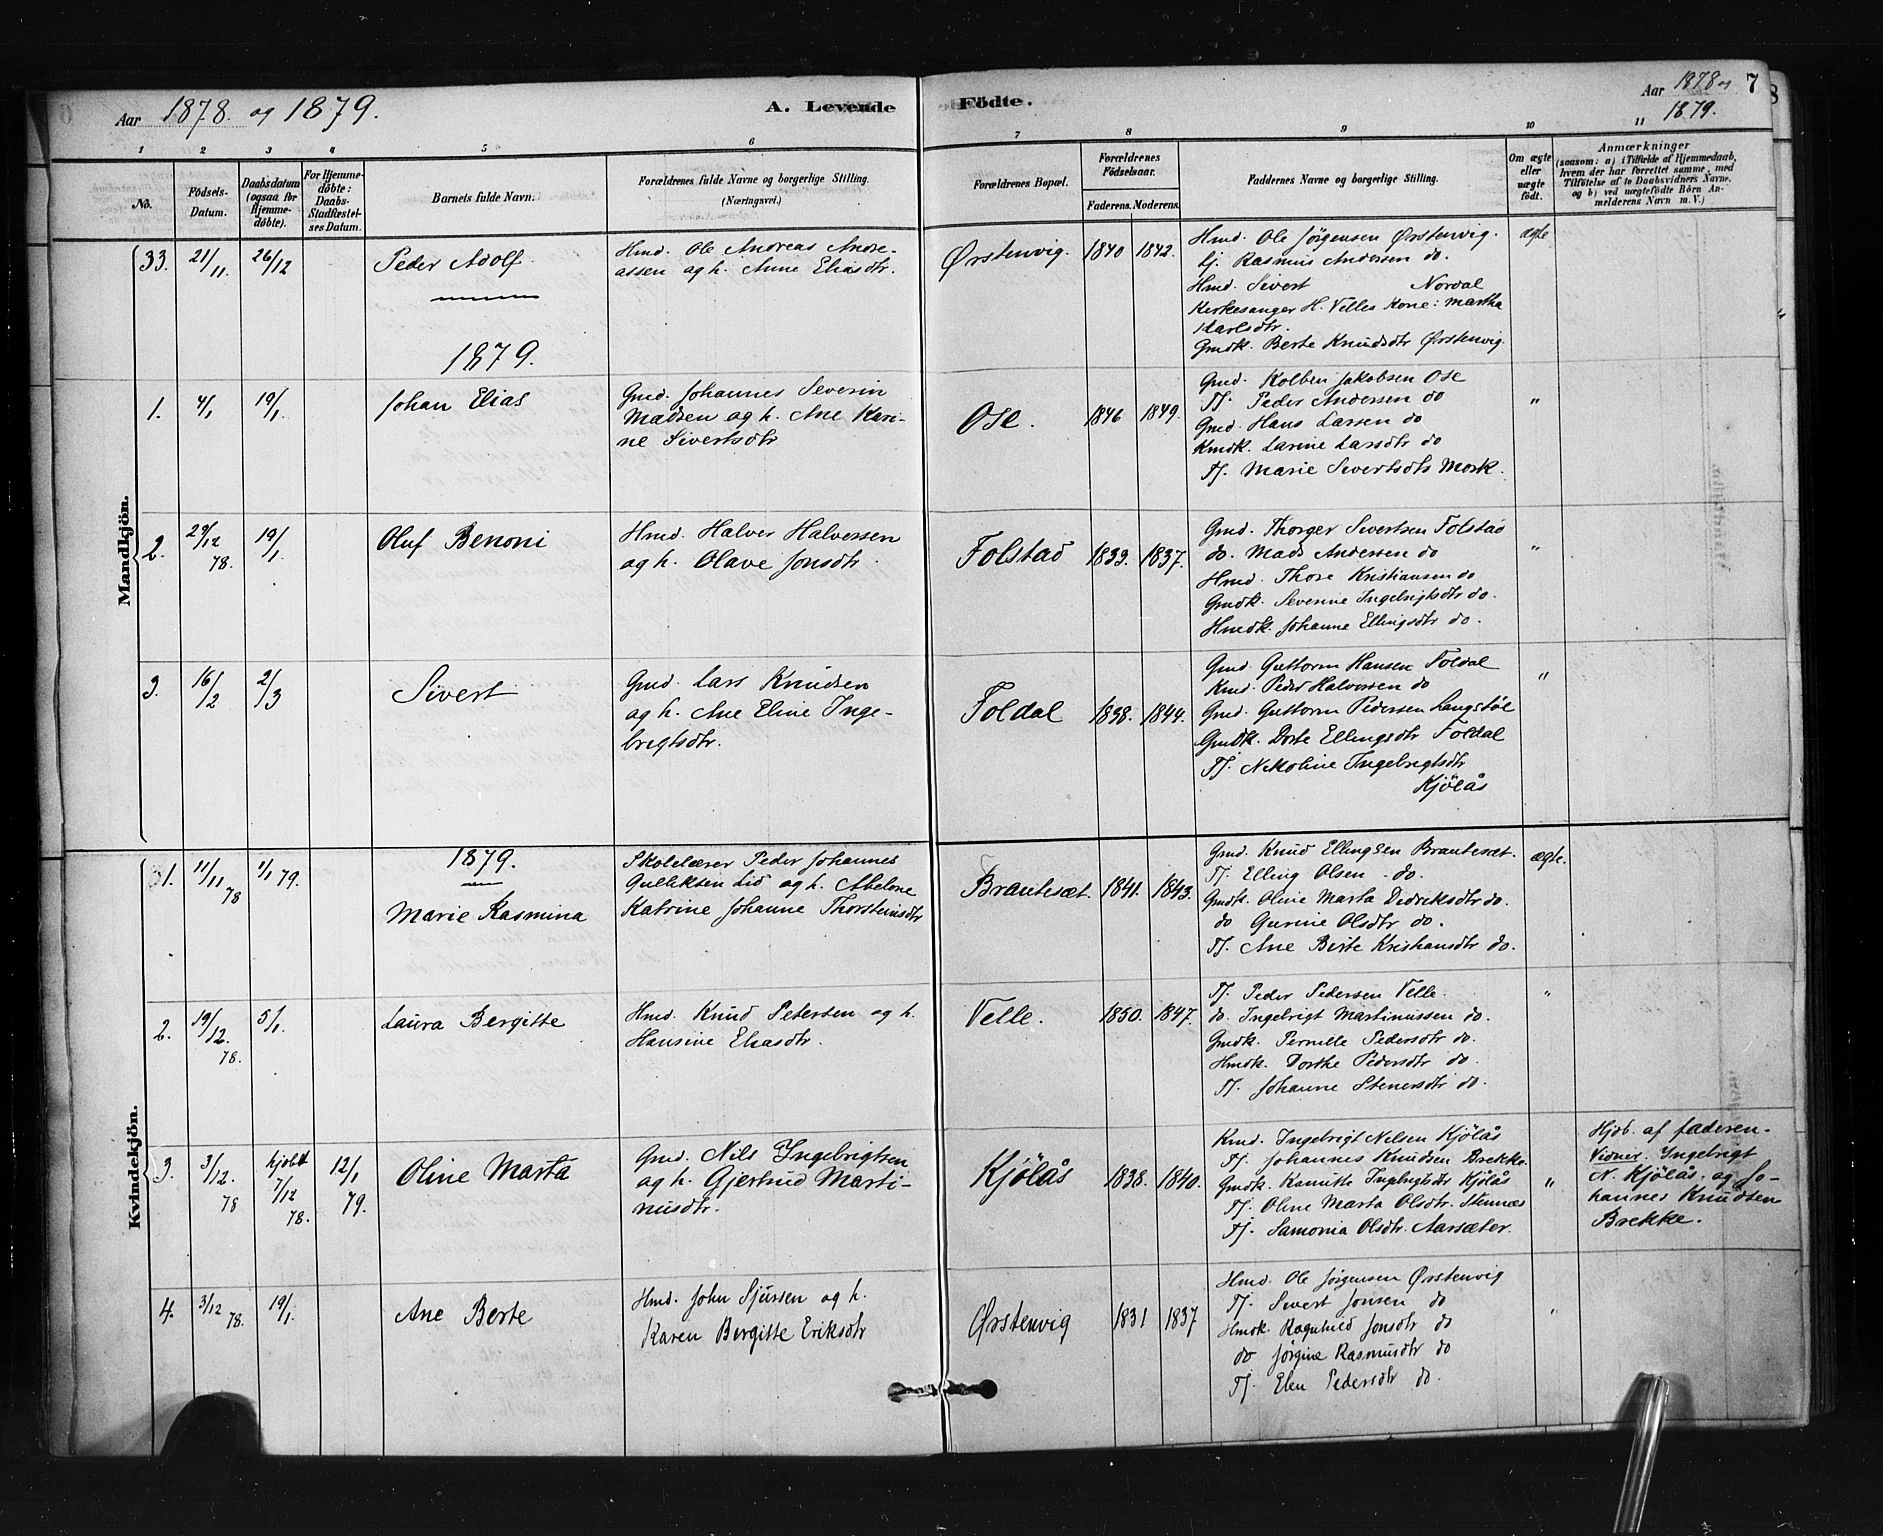 Aar 1878. og 1879.
A. Levende Födte.
Aar 1878 og 1879.
7
8
1 2 3 4 5 6 7 8 9 10 11
No.
Födsels-Datum.
Daabsdatum (ogsaa for Hjemme-döbte).
For Hjemme-döbte: Daabs-Stadfæstel-ses Datum.
Barnets fulde Navn.
Forældrenes fulde Navne og borgerlige Stilling.
(Næringsvei.)
Forældrenes Bopæl.
Forældrenes Födselsaar.
Faderens. Moderens.
Faddernes Navne og borgerlige Stilling.
Om ægte eller uægte födt.
Anmærkninger
(saasom: a) i Tilfælde af Hjemmedaab,
hvem der har forrettet samme, med
Tilföielse af to Daabsvidners Navne,
og b) ved uægtefödte Börn An-
melderens Navn m. V.)
Mandkjön.
33. 21/11. 26/12 Peder Adolf.
Hmd. Ole Andreas Andre-
assen og h. Anne Eliasdtr.
Ørstenvig. 1840 1842.
Hmd. Ole Jörgensen Ørstenvig.
Tj. Rasmus Andersen do.
Hmd. Sivert Nordal
Kirkesanger H. Velles Kone: Martha
Karlsdtr.
Gmdk. Berte Knudsdtr Ørstenvig.
ægte
1879.
1. 4/1 19/1. Johan Elias
Gmd. Johannes Severin
Madsen og h. Ane Kari-
ne Sivertsdtr
Ose. 1846 1849.
Gmd. Kolben Jakobsen Ose
Tj. Peder Andersen do
Gmd. Hans Larsen do
Kmdk. Larine Larsdtr do
Tj. Marie Sivertsdtr Mork.
"
2. 29/12 78. 19/1. Oluf Benoni
Hmd. Halver Halversen
og h. Olave Jonsdtr.
Folstad 1833. 1837.
Gmd. Thorger Sivertsen Folstad
do. Mads Andersen do
Hmd. Thore Kristiansen do
Gmdk. Severine Ingebrigtsdtr do.
Hmdk. Johanne Ellingsdtr do.
"
3. 16/2 2/3 Sivert
Gmd. Lars Knudsen
og h. Ane Eline Inge-
brigtsdtr.
Foldal 1838. 1844.
Gmd. Guttorm Hansen Foldal
Kmd. Peder Halversen do
Gmd. Guttorm Pedersen Langstöl
Gmdk. Dorte Ellingsdtr Foldal
Tj. Nikoline Ingebrigtsdtr
Kjölås
"
Kvindekjön.
1879.
1. 11/11 78 1/1 79. Marie Rasmina
Skolelærer Peder Johannes
Gulliksen Lid og h. Abelone
Katrine Johanne Thorsteinsdtr
Brautesæt. 1841. 1843.
Gmd. Knud Ellingsen Brautesæt.
Tj. Elling Olsen do.
Gmdk. Oline Marta Dedriksdtr do.
do Gurine Olsdtr do.
Tj. Ane Berte Kristiansdtr do.
ægte.
2. 19/12. 78. 5/1. Laura Bergitte
Hmd. Knud Petersen og h.
Hansine Eliasdtr.
Velle. 1850. 1847.
Tj. Peder Pedersen Velle.
do. Ingebrigt Martinussen do.
Gmdk. Pernille Pedersdtr do.
Hmdk. Dorthe Pedersdtr do.
Tj. Johanne Stenersdtr do.
"
3. 3/12. 78 hjdbt 7/12 78. 12/1 79. Oline Marta
Gmd. Nils Ingebrigtsen
og h. Gjertrud Marti-
nusdtr.
Kjölås 1838. 1840.
Kmd. Ingebrigt Nelsen Kjölås
Tj. Johannes Knudsen Brekke.
Gmdk. Kanutte Ingebrigtsdtr Kjölås
Tj. Oline Marta Olsdtr. Stennæs
Tj. Samonia Olsdtr. Aarsæter.
"
Hjdb. af faderen.
Vidner. Ingebrigt
N. Kjölås. og Jo-
hannes Knudsen
Brekke.
4. 3/12 78. 19/1. Ane Berte
Hmd. John Sjursen og h.
Karen Bergitte Eriksdtr
Ørstenvig 1831 1837
Hmd. Ole Jörgensen Ørstenvig
Tj. Sivert Jonsen do
Hmdk. Ragnhild Jonsdtr do
do Jörgine Rasmusdtr do
Tj. Elen Pedersdtr do.
"